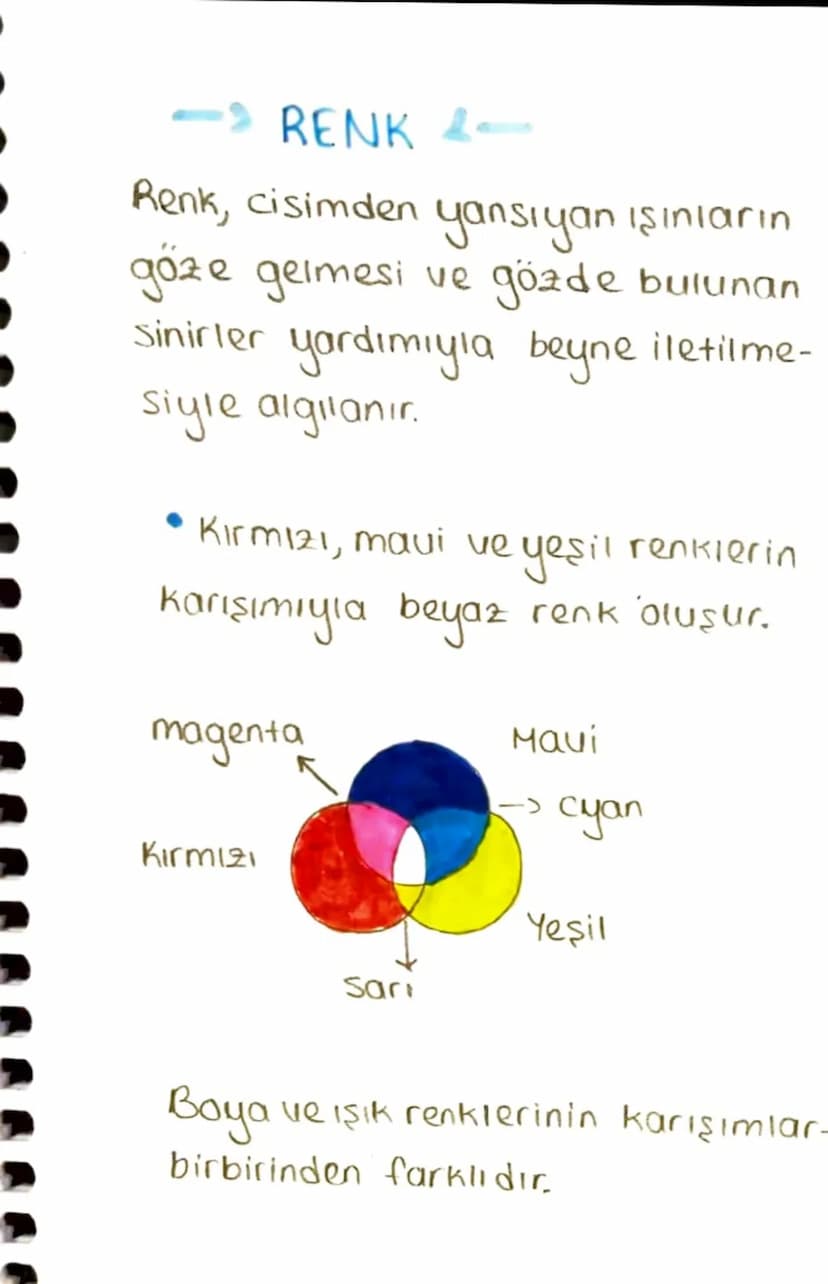 RENK
Renk, cisimden yansıyan ışınların
göze gelmesi ve gözde bulunan
sinirler yardımıyla beyne iletilme-
siyle algılanır.
• Kırmızı, mavi ve yeşil renklerin
karışımıyla beyaz renk oluşur.
magenta
Mavi
cyan
Kırmızı
Yeşil
sarı
Boya ve ışık renklerinin karışımlar-
birbirinden farklıdır.